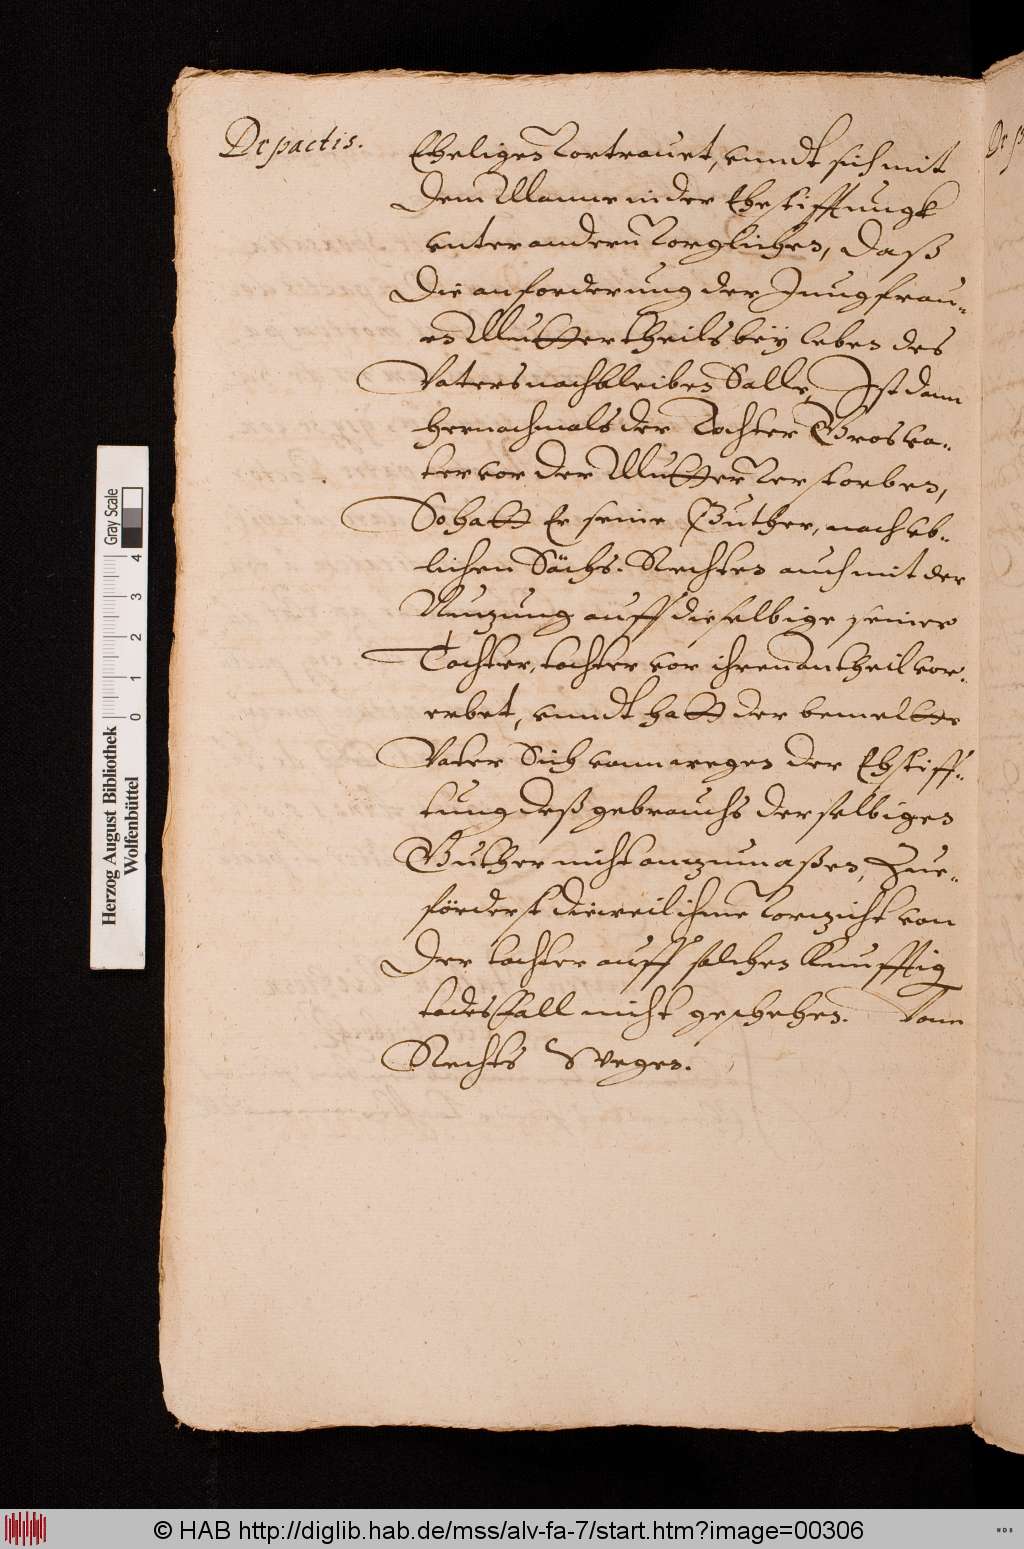 De pactis.
Eheligen Vortrauet, vnndt sich mit
dem Manne in der Ehestifftungk
vnter andern Vorglichen, daß
die anforderung der Jungfrau-
en Mutter theils beÿ leben des
Vaters nachbleiben Solle, Ist dann
hernachmals der Tochter Grosva-
ter vor der Mutter Verstorben,
So hatt Er seine Guther, nach vb-
lichen Sächs. Rechten auch mit der
Nuzung auff dieselbige seiner
Tochter, tochter vor ihren antheil vor-
erbet, vnndt hatt der bemelte
Vater Sich vonn wegen der Ehstiff-
tung deß gebrauchs derselbigen
Guther nicht anzumaßen, Zue-
förderst dieweil ihme Vorzicht von
der tochter auff solchen Kunfftig
todesfall nicht geschehen. Vonn
Rechts Wegen.
De p
Herzog August Bibliothek
Wolfenbüttel
0 1 2 3 4
Gray Scale
© HAB http://diglib.hab.de/mss/alv-fa-7/start.htm?image=00306